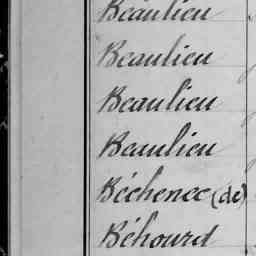 Beaulieu
Beaulieu
Beaulieu
Beaulieu
Béchenec (de)
Béhourd